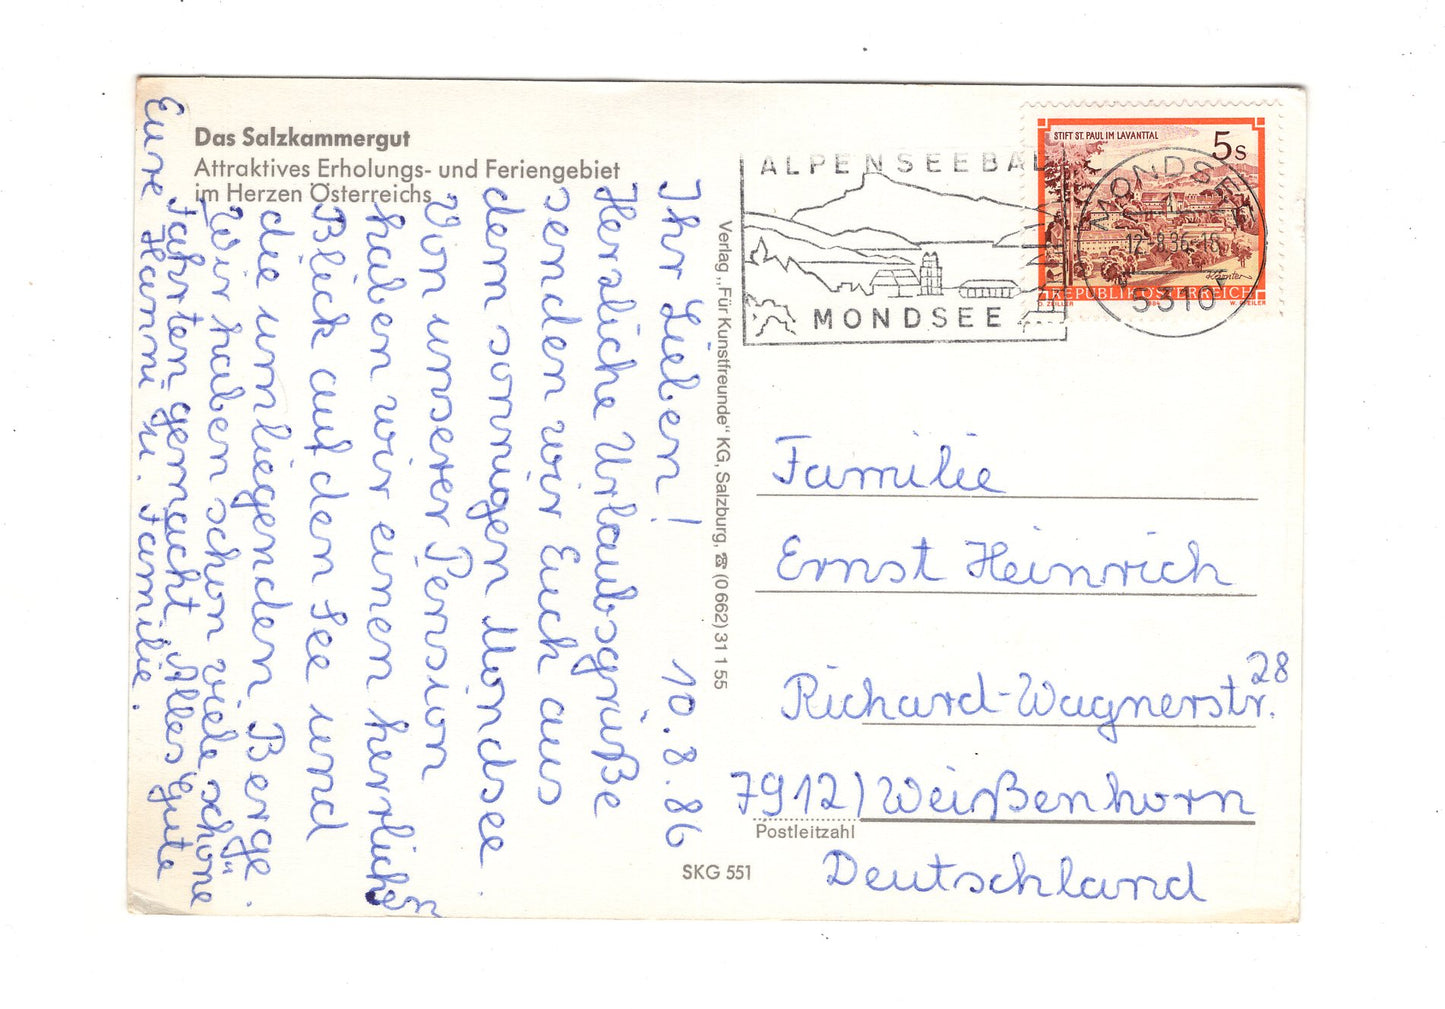 Das Salzkammergut
Attraktives Erholungs- und Feriengebiet
im Herzen Österreichs
10.8.86
Ihr Lieben!
Herzliche Urlaubsgrüße
senden wir Euch aus
dem sonnigen Mondsee.
Von unserer Pension
haben wir einen herrlichen
Blick auf den See und
die umliegenden Berge.
Wir haben schon viele schöne
Fahrten gemacht. Alles Gute
Eure Hanni u. Familie.
Verlag „Für Kunstfreunde“ KG, Salzburg, ☎ (0 662) 31 1 55
SKG 551
ALPENSEEBAD
MONDSEE
STIFT ST. PAUL IM LAVANTTAL
5 S
REPUBLIK ÖSTERREICH
MONDSEE
5310
Familie
Ernst Heinrich
Richard-Wagnerstr. 28
7912) Weißenhorn
Postleitzahl
Deutschland